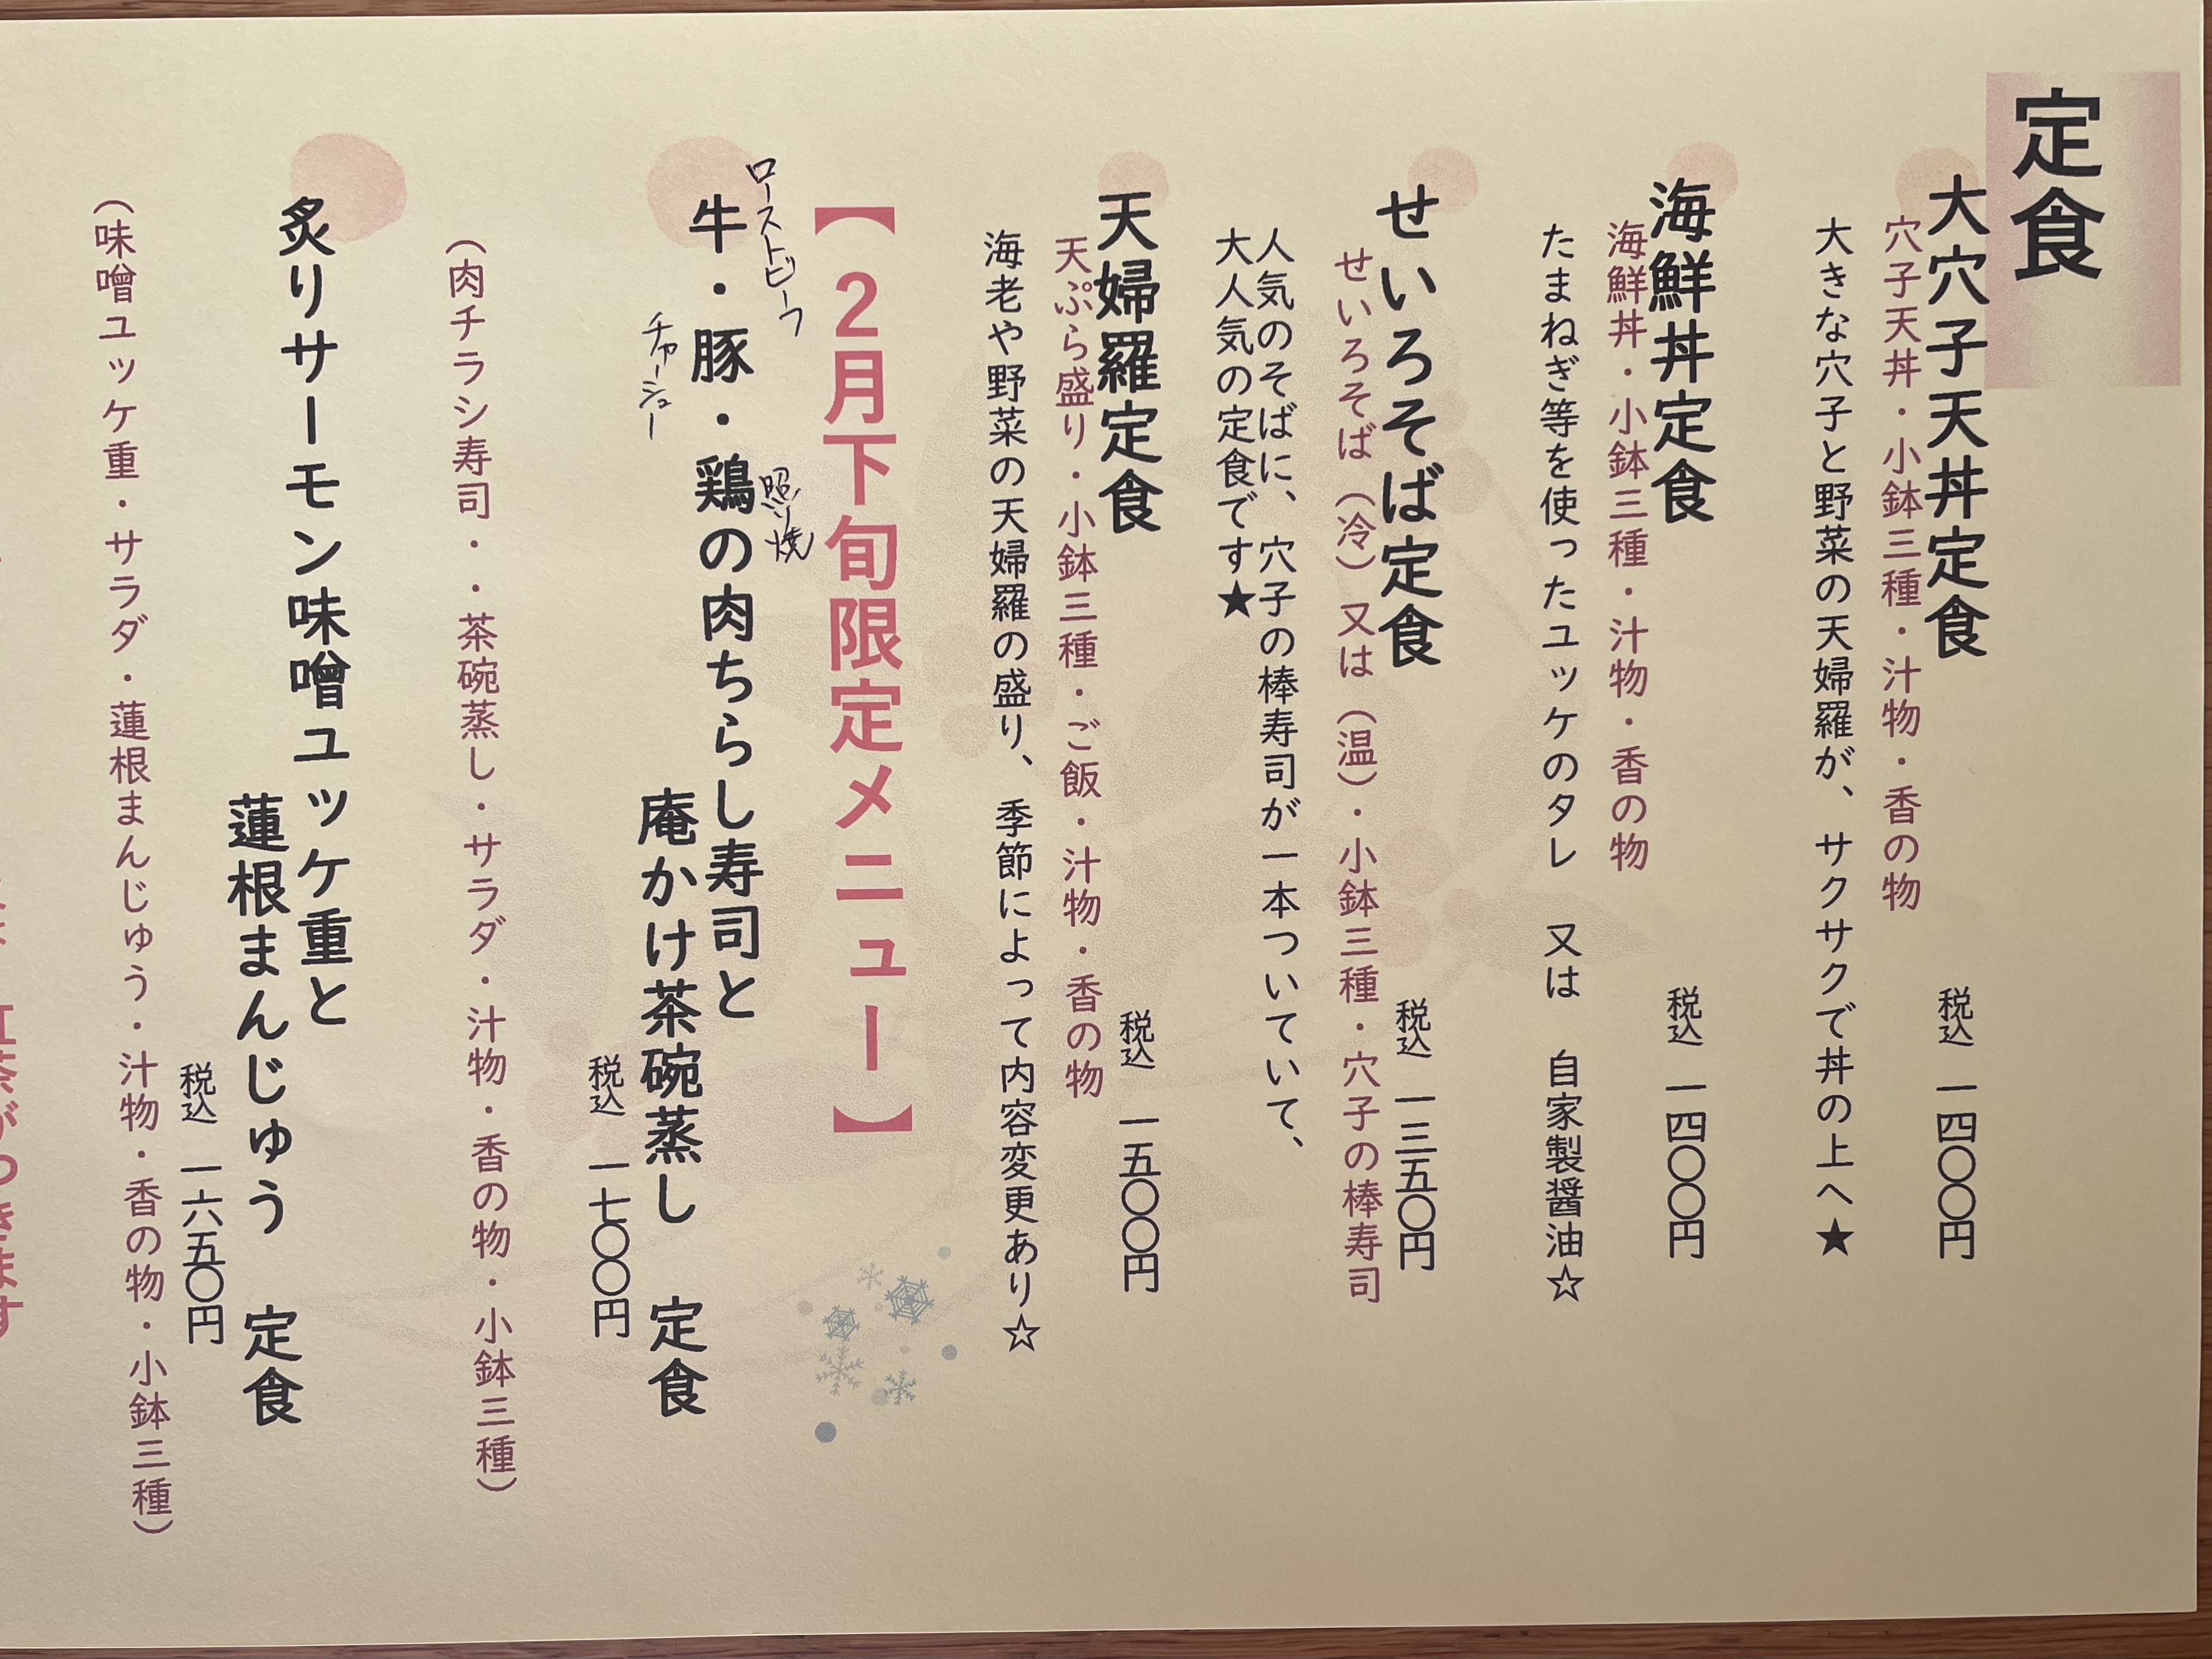 定食
大穴子天丼定食
税込 一四〇〇円
穴子天丼・小鉢三種・汁物・香の物
大きな穴子と野菜の天婦羅が、サクサクで丼の上へ★
海鮮丼定食
税込 一四〇〇円
海鮮丼・小鉢三種・汁物・香の物
たまねぎ等を使ったユッケのタレ 又は 自家製醤油☆
せいろそば定食
税込 一三五〇円
せいろそば（冷）又は（温）・小鉢三種・穴子の棒寿司
人気のそばに、穴子の棒寿司が一本ついていて、
大人気の定食です★
天婦羅定食
税込 一五〇〇円
天ぷら盛り・小鉢三種・ご飯・汁物・香の物
海老や野菜の天婦羅の盛り、季節によって内容変更あり☆
【2月下旬限定メニュー】
ローストビーフ
照り焼
牛・豚・鶏の肉ちらし寿司と
チャーシュー
庵かけ茶碗蒸し 定食
税込 一七〇〇円
（肉チラシ寿司・・茶碗蒸し・サラダ・汁物・香の物・小鉢三種）
炙りサーモン味噌ユッケ重と
蓮根まんじゅう 定食
税込 一六五〇円
（味噌ユッケ重・サラダ・蓮根まんじゅう・汁物・香の物・小鉢三種）
紅茶がつきます